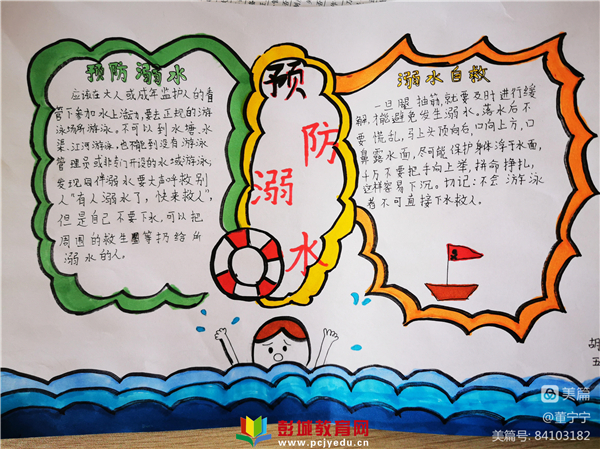 预防溺水
应该在大人或成年监护人的看
管下参加水上活动,要去正规的游
泳场所游泳,不可以到水塘、水
渠、江河游泳,也不能到没有游泳
管理员或非对外开设的水域游泳;
发现同伴溺水要大声呼救别
人“有人溺水了,快来救人”,
但是自己不要下水,可以把
周围的救生圈等扔给所
溺水的人。
预
防
溺
水
溺水自救
一旦腿抽筋,就要及时进行缓
解,才能避免发生溺水,落水后不
要慌乱,马上头顶向后,口向上方,口
鼻露水面,尽可能保护身体浮于水面,
千万不要把手向上举,拼命挣扎,
这样容易下沉。切记:不会游泳
者不可直接下水救人。
胡
五
美篇
@董宁宁
美篇号: 84103182
彭城教育网
www.pcjyedu.cn